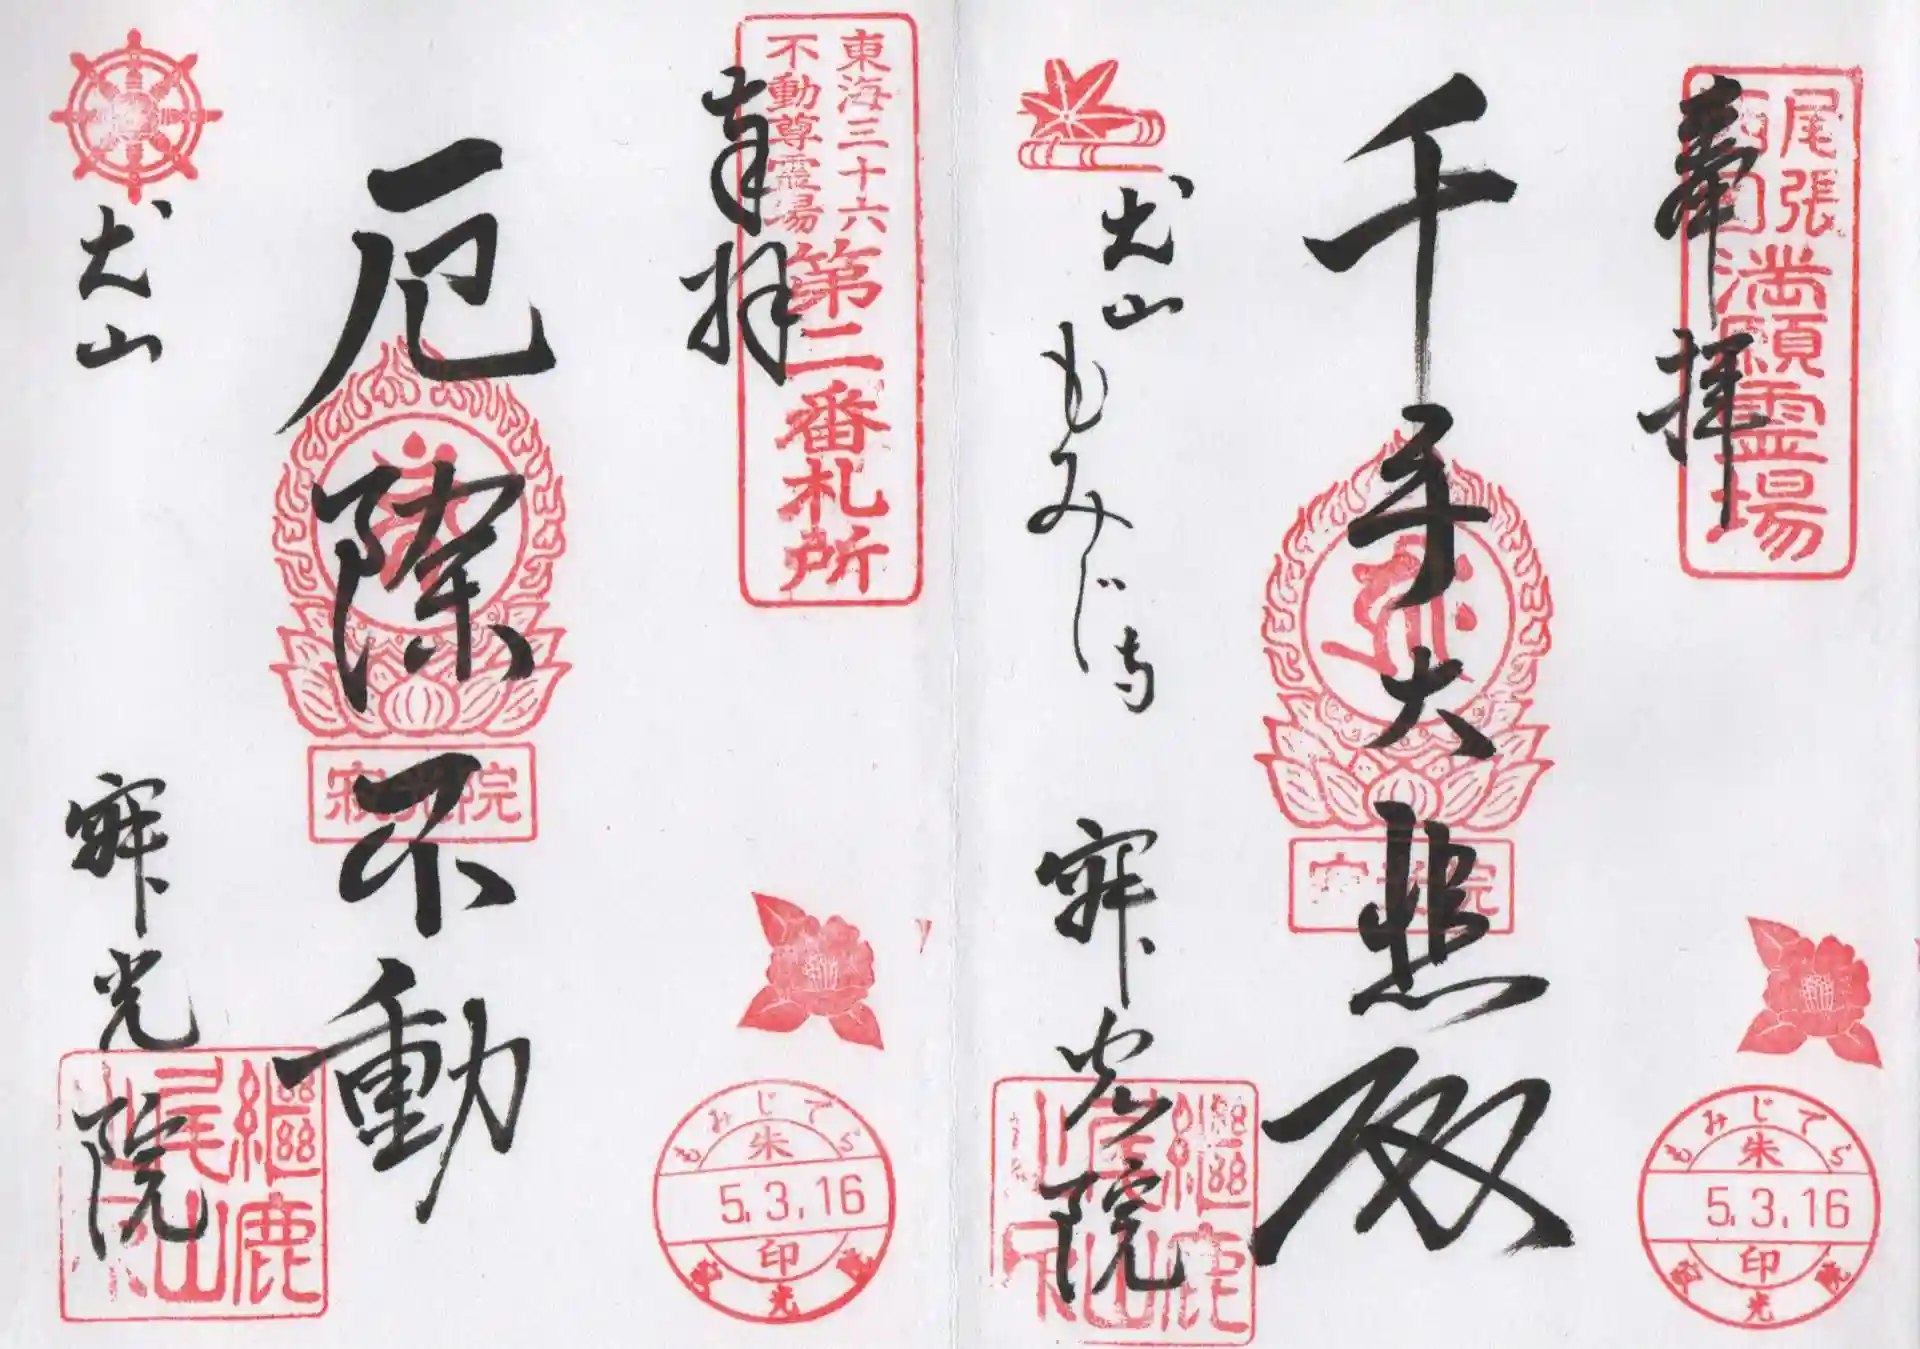 奉拝
尾張
西国
満願霊場
千手大悲殿
犬山
もみじ寺
寂光院
寂光院
継鹿
尾山
もみじでら
朱
5.3.16
印
寂光院
奉拝
東海三十六
不動尊霊場
第二番札所
厄除不動
犬山
寂光院
寂光院
継鹿
尾山
もみじでら
朱
5.3.16
印
寂光院